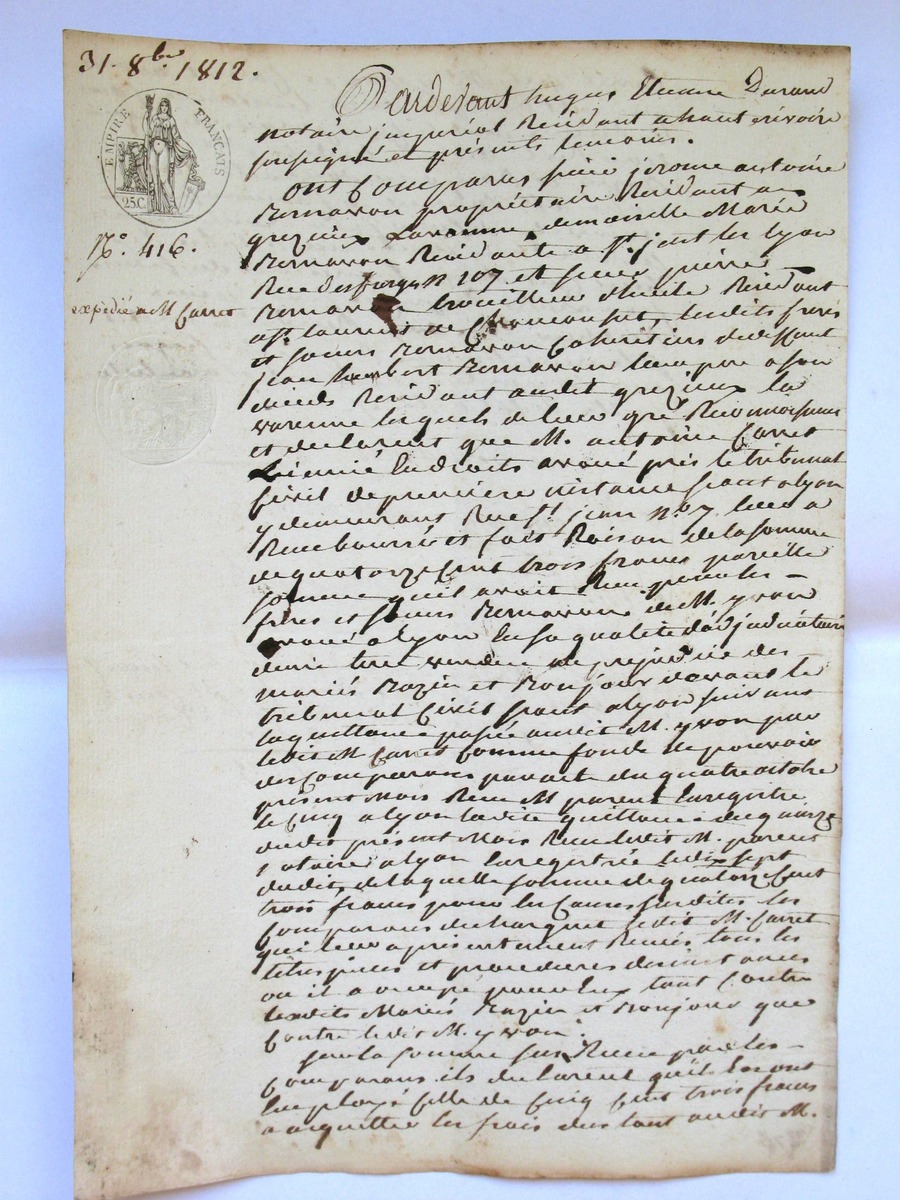 31. 8bre 1812.
EMPIRE FRANÇAIS
25.C.
N.o 416.
expédié a M Carret
Pardevant hugues Etienne Durand
notaire imperial Residant a haut rivoire
soussigné et présents temoins.
ont Comparus sieur jerome antoine
propriétaire Residant a
grezieux Lavarenne, demoiselle Marie
Residante a St. just les lyon
Rue des farges n 107 et sieur pierre
travailleur Residant
a St. laurent de Chamousset, lesdits freres
et soeurs Cohéritiers de deffunt
jean leur pere a son
décéds Residant audit grezieux la
varenne lesquels de leur gré Reconnoissent
et declarent que M. antoine Carret
Licencié en droits avoué près le tribunal
Civil de premiere instance séant a lyon
y demeurant Rue St. jean n.o 7 leur a
Remboursé et fait Raison de la somme
de quatorze Cent trois francs pareille
somme qu'il avait Reçu pour les
freres et soeurs de M. yvon
avoué a lyon en sa qualité d'adjudicataire
vendue au préjudice des
mariés Razier et Bonjour devant le
tribunal Civil séant a lyon suivant
la quittance passée audit M. yvon par
ledit M Carret Comme fondé de pouvoir
des Comparans par acte du quatre octobre
présent mois Reçu M parent Enregistré
le Cinq a lyon ladite quittance du quinze
dudit présent mois Reçu ledit M. parent
notaire a lyon Enregistrée le dix sept
dudit, de laquelle somme de quatorze Cent
trois francs pour les Causes susdites les
Comparans dechargent ledit M. Carret
qui leur a présentement Remis tous les
titres pieces et procedures des instances
ou il a occupé pour Eux tant Contre
lesdits Mariés Razier et Bonjour que
Contre ledit M. yvon.
sur la somme sus Reçue par les
Comparans ils declarent qu'ils En ont
Employé Celle de Cinq Cent trois francs
a acquitter les frais dus tant audit M.